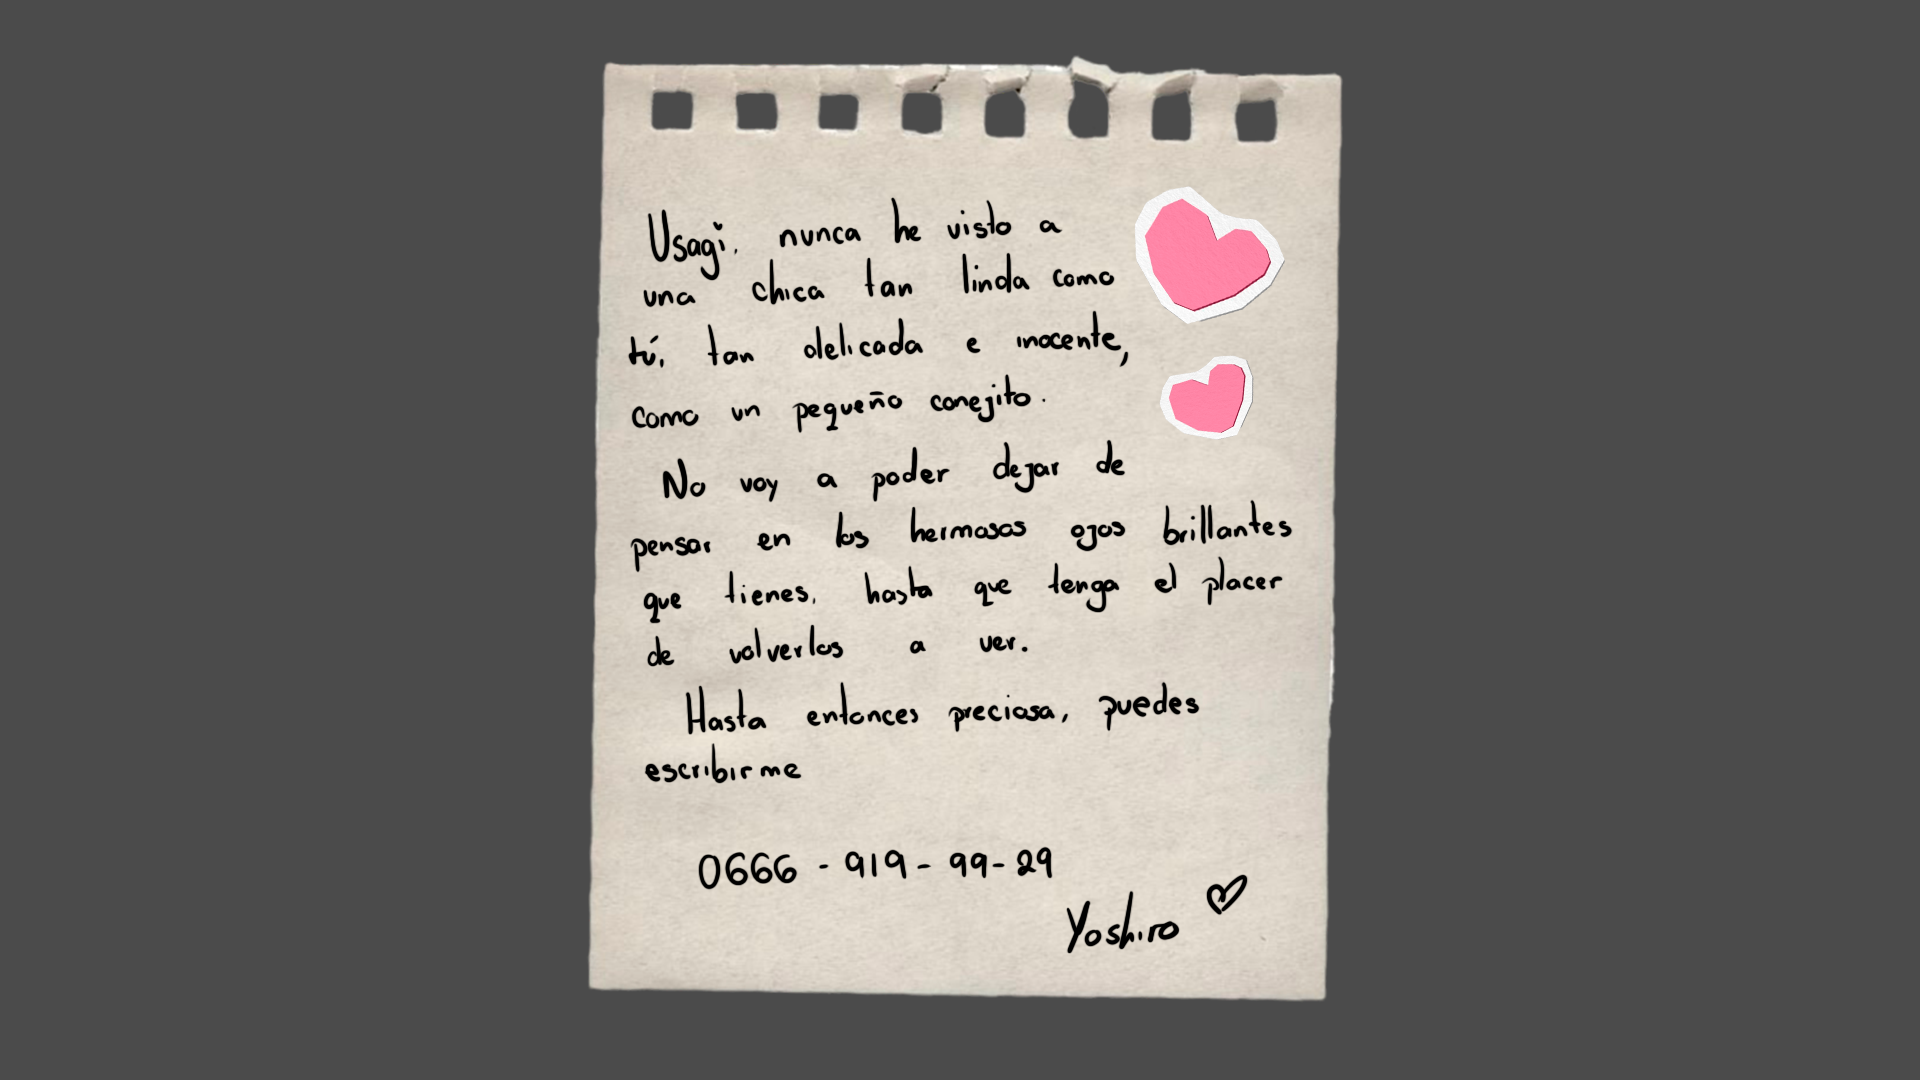 Usagi. nunca he visto a
una chica tan linda como
tú, tan delicada e inocente,
como un pequeño conejito.
No voy a poder dejar de
pensar en los hermosos ojos brillantes
que tienes, hasta que tenga el placer
de volverlos a ver.
Hasta entonces preciosa, puedes
escribirme
0666 - 919 - 99 - 29
Yoshiro